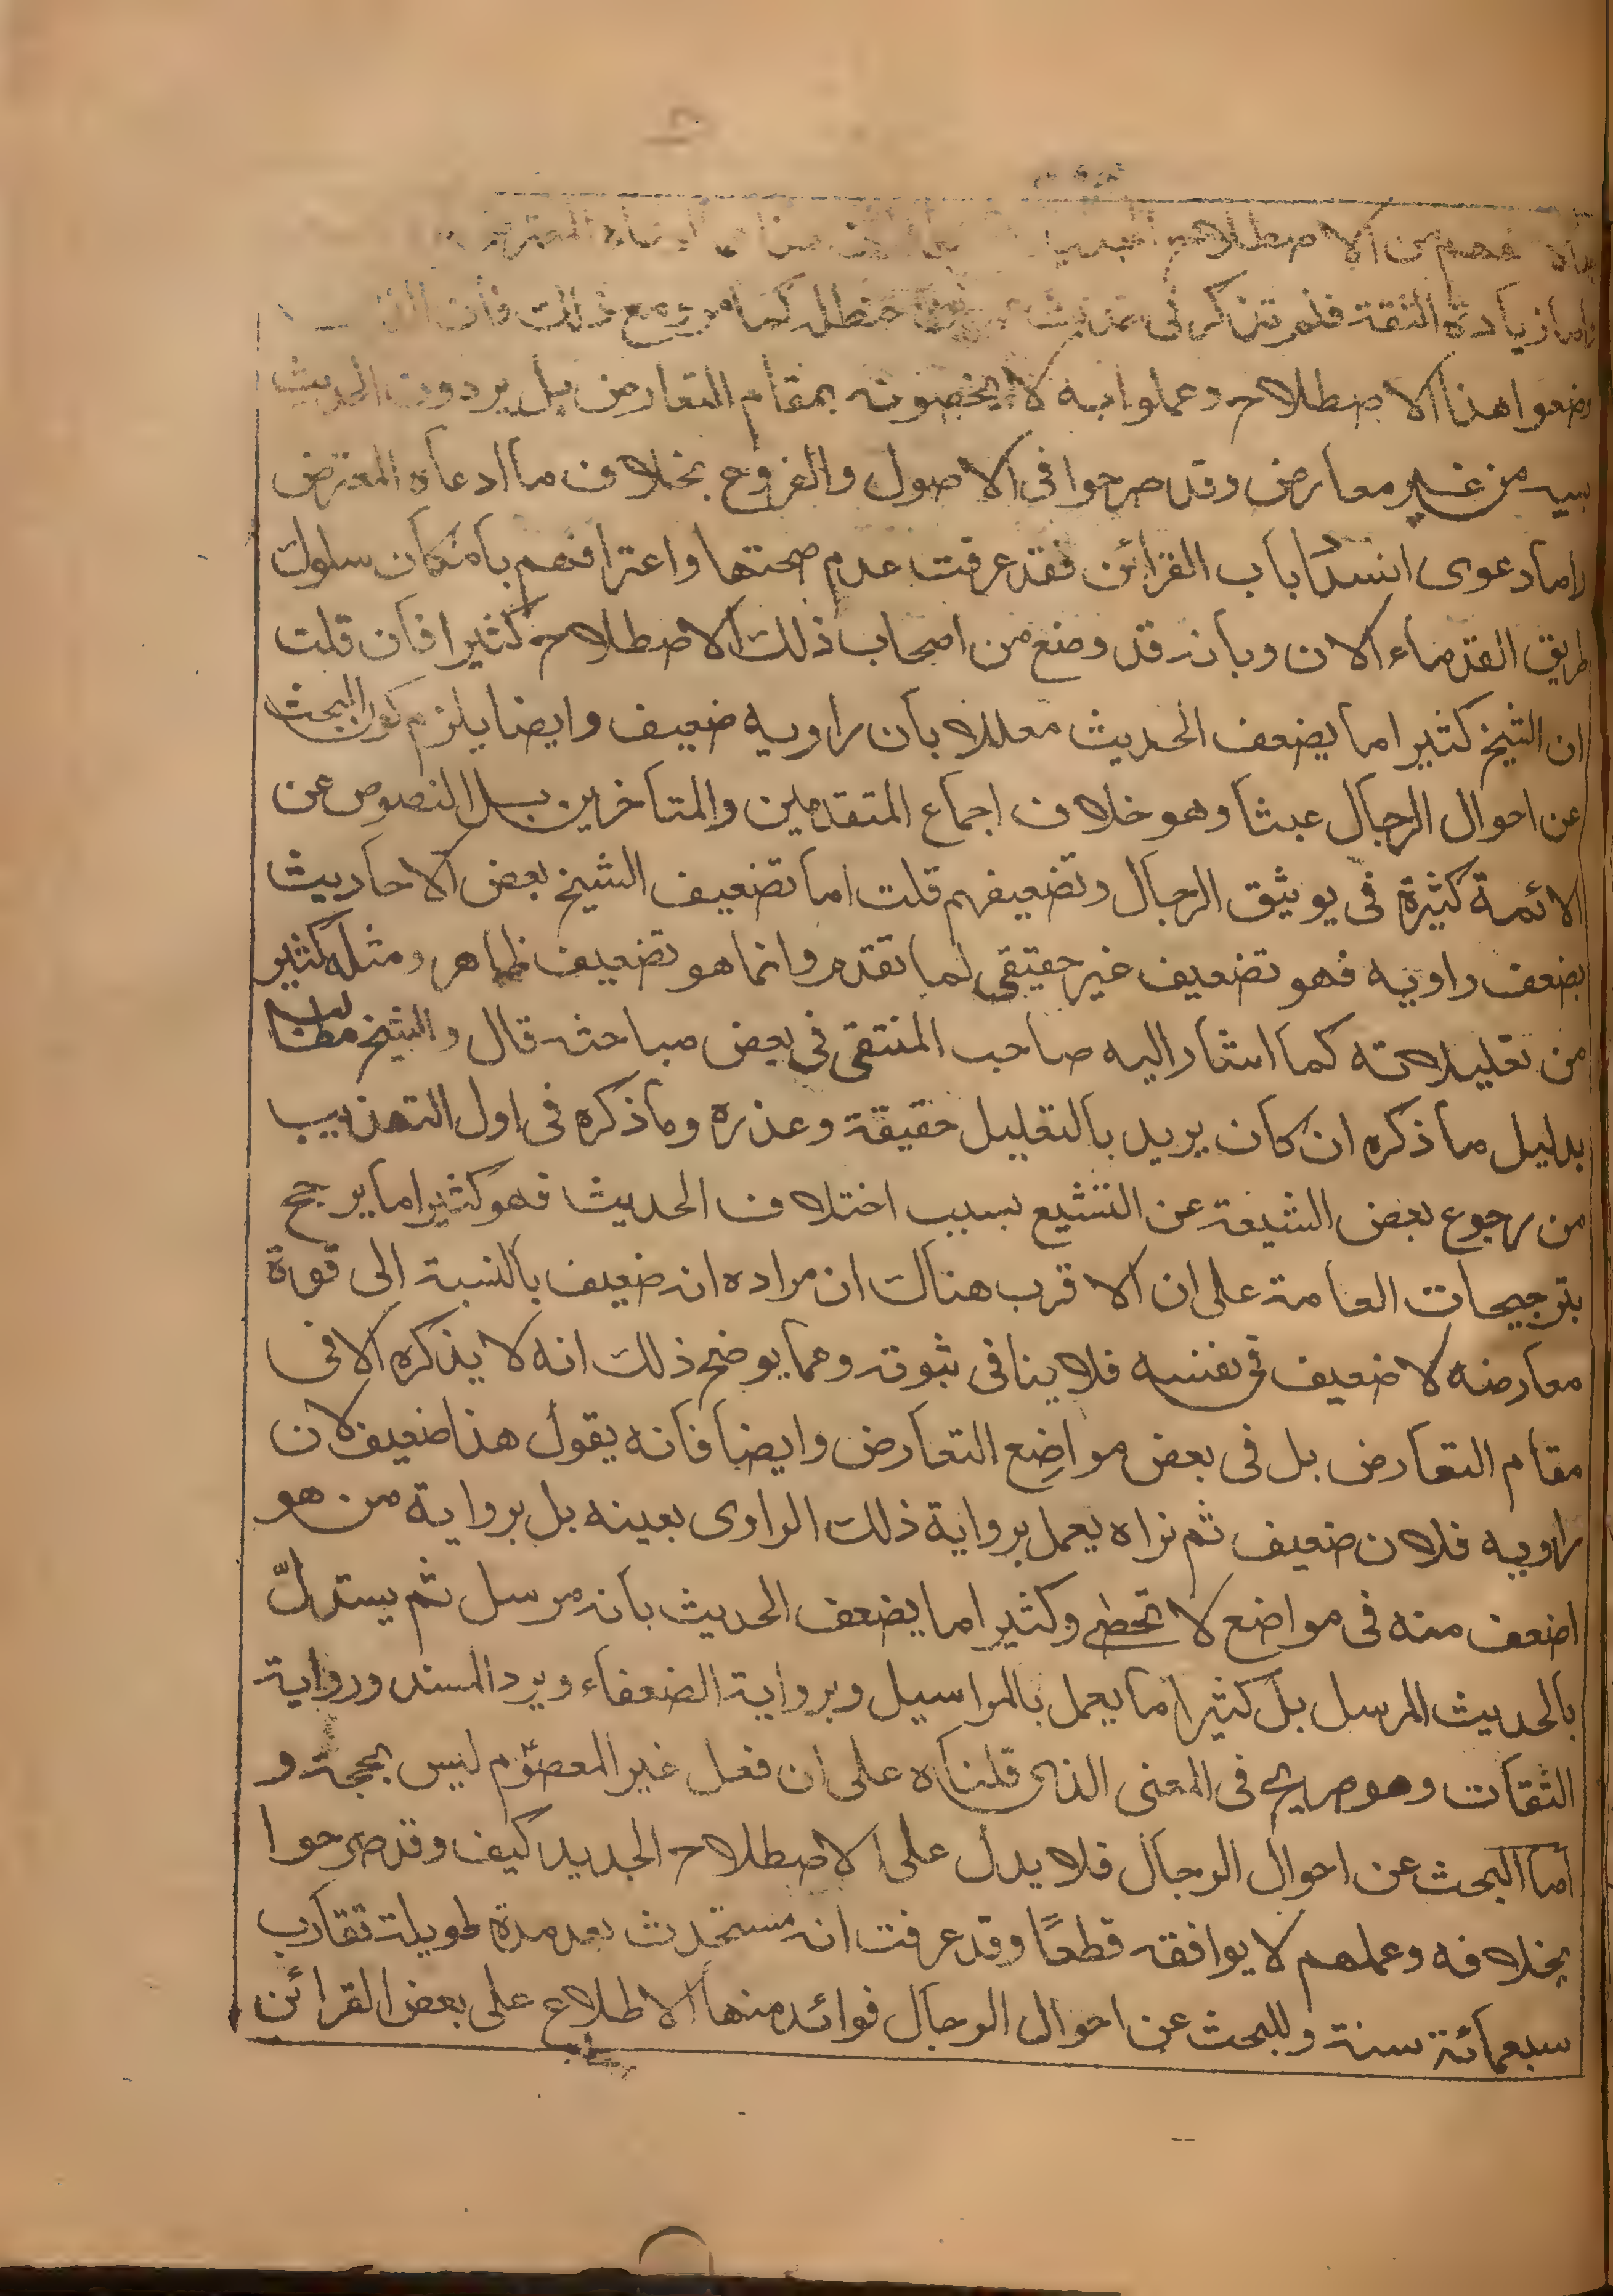 فهم من الاصطلاح
واما زيادة الثقة فلم تذكر في حديث حنظلة كما مر ومع ذلك فان
وضعوا هذا الاصطلاح وعملوا به لا يخصونه بمقام التعارض بل يردون الحديث
من غير معارض وقد صرحوا في الاصول والفروع بخلاف ما ادعاه المعترض
واما دعوى انسداد باب القرائن فقد عرفت عدم صحتها واعترافهم بامكان سلوك
طريق القدماء الان وبانه قد وضع من اصحاب ذلك الاصطلاح كثيرا فان قلت
ان الشيخ كثيرا ما يضعف الحديث معللا بان راويه ضعيف وايضا يلزم كون البحث
عن احوال الرجال عبثا وهو خلاف اجماع المتقدمين والمتاخرين بل النصوص عن
الائمة كثيرة في يوثيق الرجال وتضعيفهم قلت اما تضعيف الشيخ بعض الاحاديث
بضعف راويه فهو تضعيف غير حقيقي لما تقدم وانما هو تضعيف ظاهر ومثله كثير
من تعليلاته كما اشار اليه صاحب المنتقى في بعض مباحثه قال والشيخ مطالب
بدليل ما ذكره ان كان يريد بالتعليل حقيقة وعذره وما ذكره في اول التهذيب
من رجوع بعض الشيعة عن التشيع بسبب اختلاف الحديث فهو كثيرا ما يرجح
بترجيحات العامة على ان الاقرب هناك ان مراده انه ضعيف بالنسبة الى قوة
معارضه لا ضعيف في نفسه فلا ينافي ثبوته ومما يوضح ذلك انه لا يذكره الا في
مقام التعارض بل في بعض مواضع التعارض وايضا فانه يقول هذا ضعيف لان
راويه فلان ضعيف ثم نراه يعمل برواية ذلك الراوي بعينه بل برواية من هو
اضعف منه في مواضع لا تحصى وكثيرا ما يضعف الحديث بانه مرسل ثم يستدلّ
بالحديث المرسل بل كثيرا ما يعمل بالمراسيل وبرواية الضعفاء ويرد المسند ورواية
الثقات وهو صريح في المعنى الذي قلناه على ان فعل غير المعصوم ليس بحجة و
اما البحث عن احوال الرجال فلا يدل على الاصطلاح الجديد كيف وقد صرحوا
بخلافه وعملهم لا يوافقه قطعًا وقد عرفت انه مستحدث بعد مدة طويلة تقارب
سبعمائة سنة وللبحث عن احوال الرجال فوائد منها الاطلاع على بعض القرائن